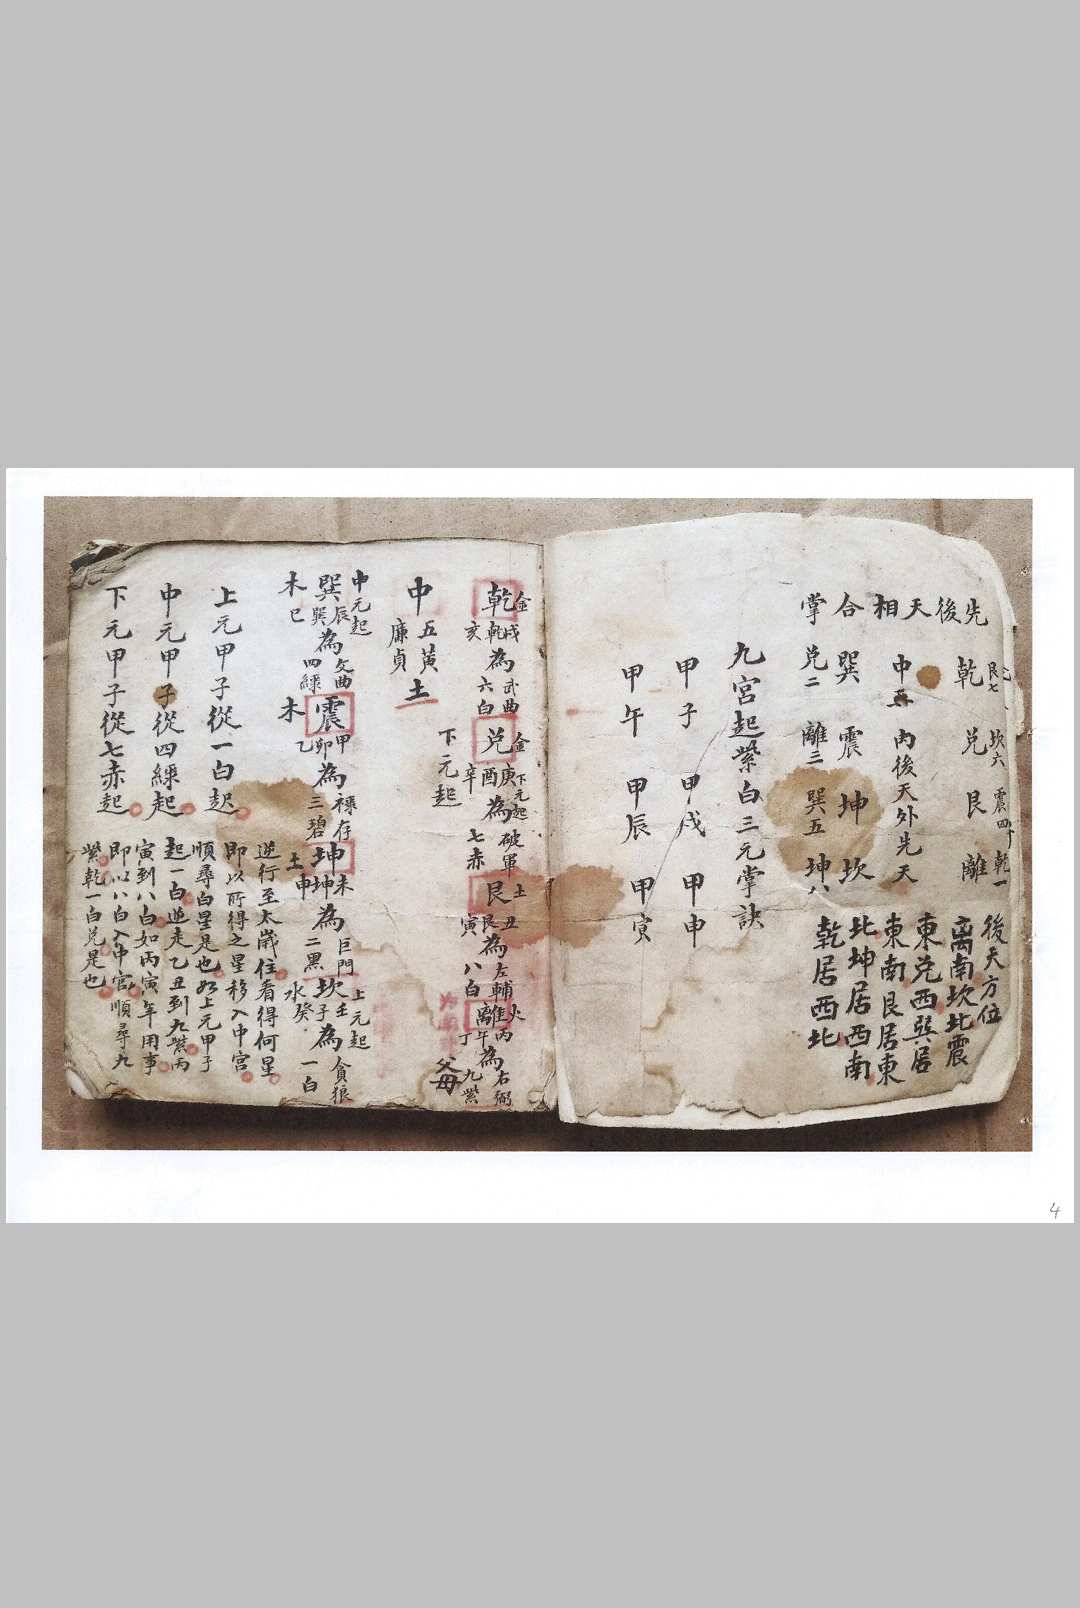 先後天相合掌
艮七 坎六 震四 乾一
乾 兑 艮 離
中五 内後天外先天
巽 震 坤 坎
兑二 離三 巽五 坤八
後天方位
离南坎北震
東兑西巽居
東南艮居東
北坤居西南
乾居西北
九宮起紫白三元掌訣
甲子 甲戌 甲申
甲午 甲辰 甲寅
金 乾 戌乾亥 為 武曲 六白
金 兑 庚酉辛 為 破軍 七赤 下元起
土 艮 丑艮寅 為 左輔 八白
火 離 丙午丁 為 右弼 九紫
下元起
父母
中 五黄 廉貞 土
中元起
木 巽 辰巽巳 為 文曲 四綠
木 震 甲卯乙 為 祿存 三碧
土 坤 未坤申 為 巨門 二黑
上元起
水 坎 壬子癸 為 貪狼 一白
上元甲子從一白起
中元甲子從四綠起
下元甲子從七赤起
逆行至太歲住看得何星
即以所得之星移入中宮
順尋白星是也如上元甲子
起一白逆走乙丑到九紫丙
寅到八白如丙寅年用事
即以八白入中宮順尋九
紫乾一白兑是也
4